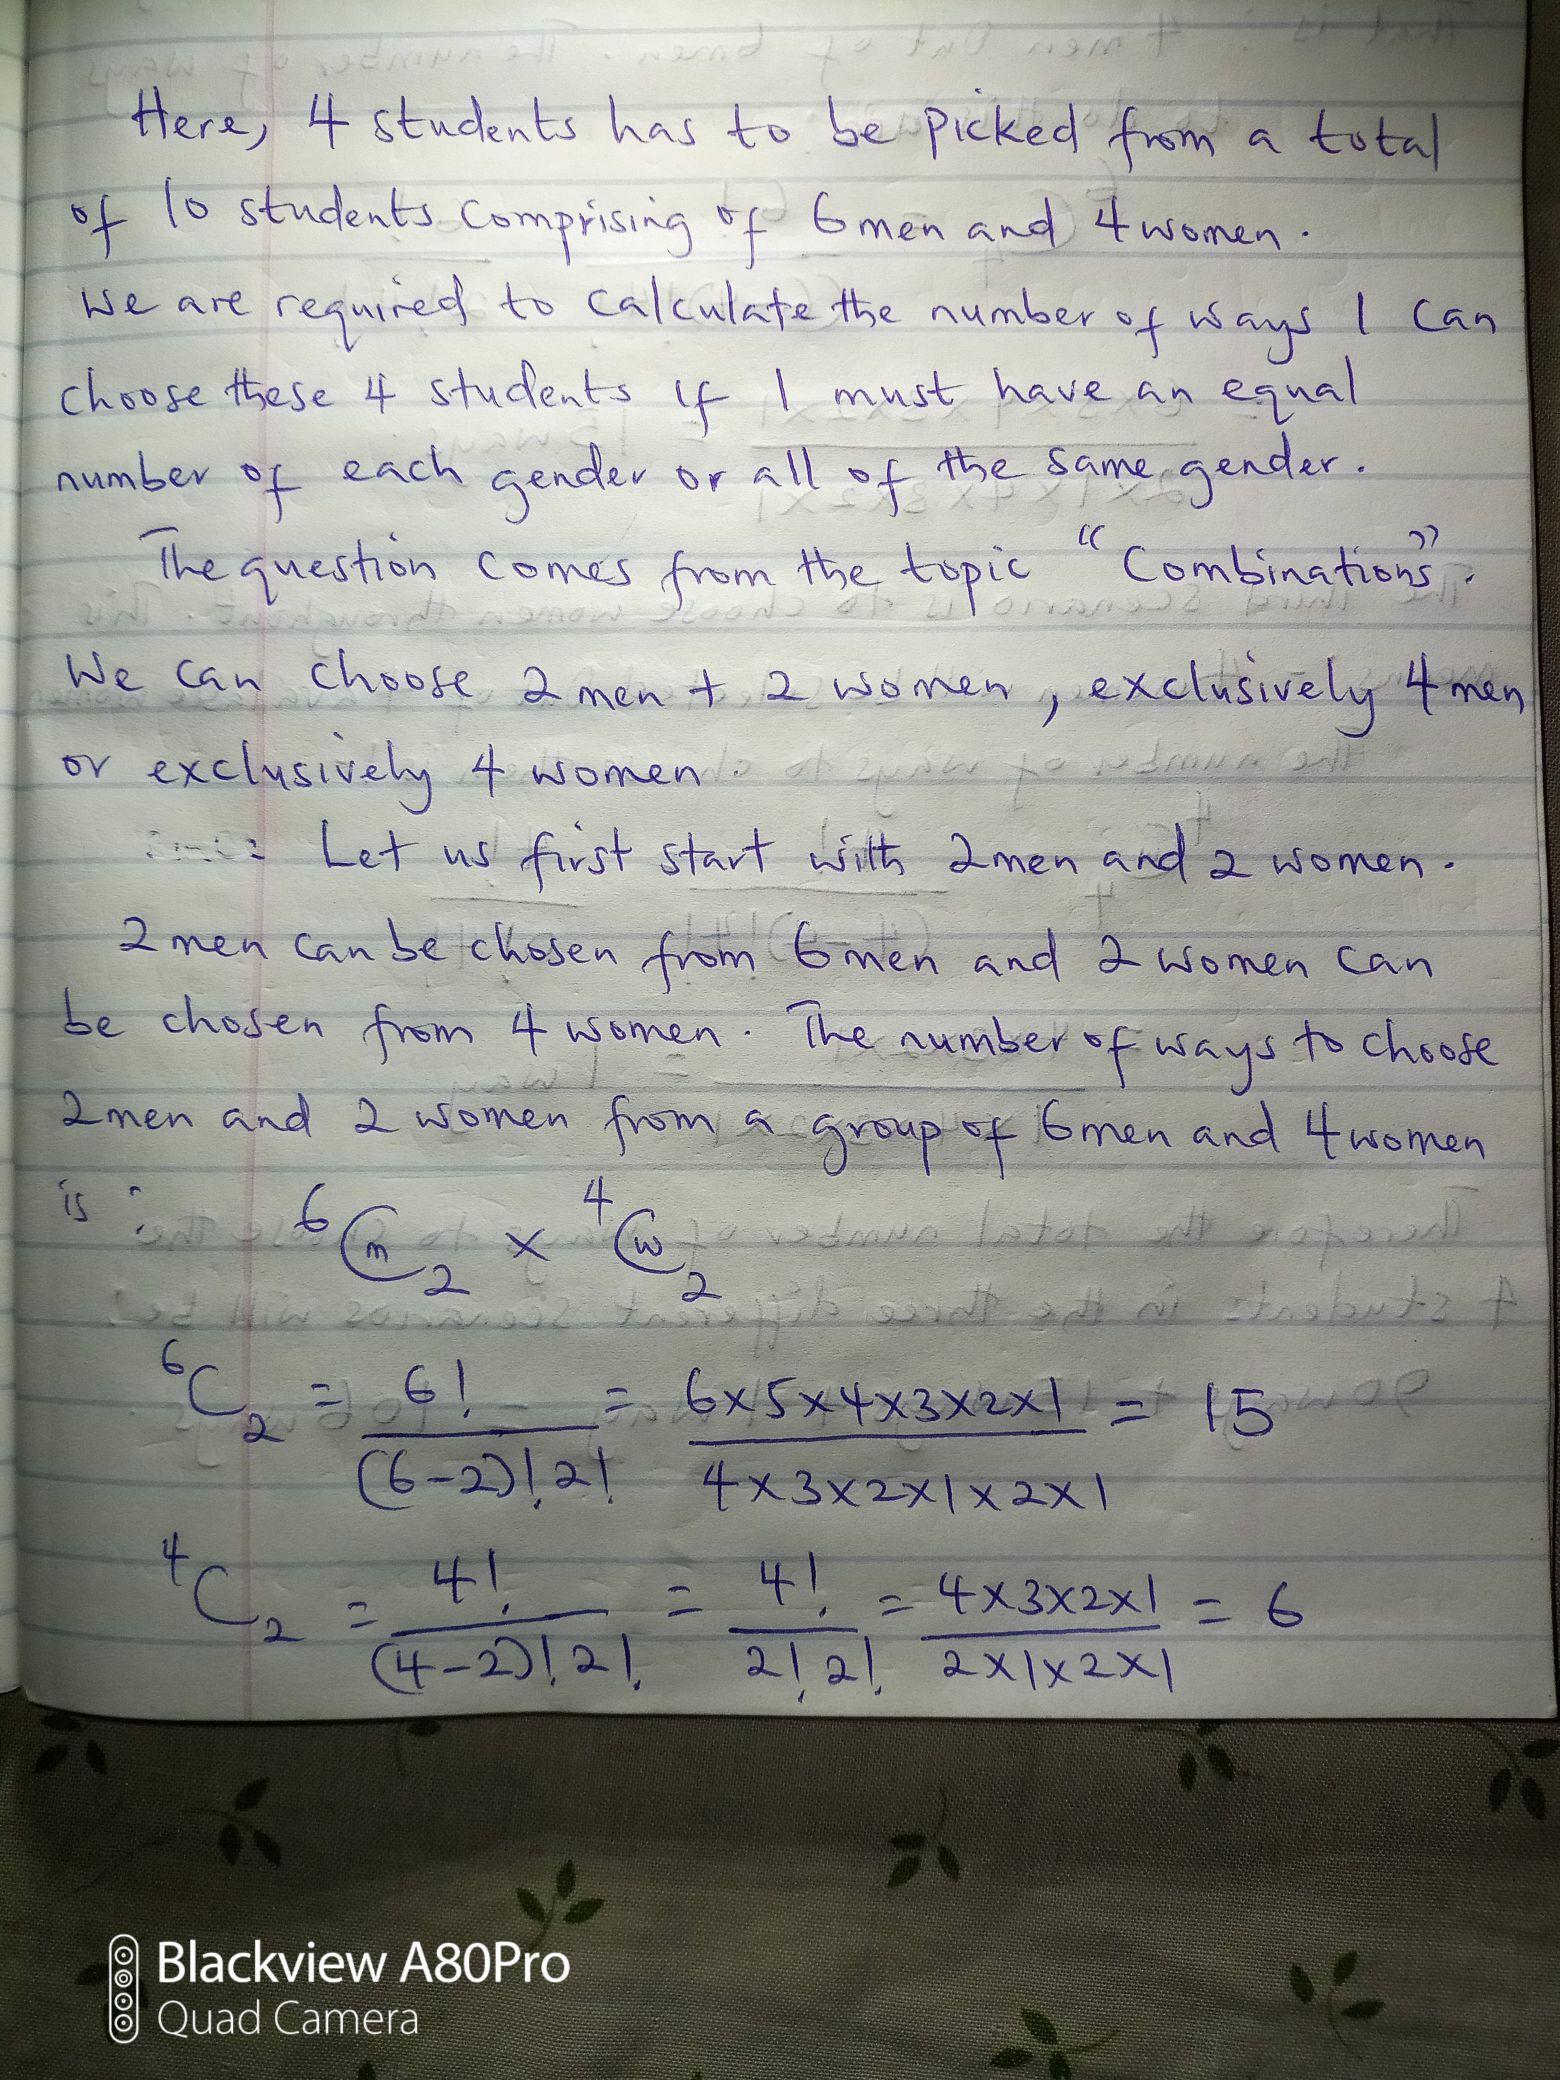 Here, 4 students has to be picked from a total
of 10 students comprising of 6 men and 4 women.
We are required to calculate the number of ways I can
choose these 4 students if I must have an equal
number of each gender or all of the same gender.
The question comes from the topic "Combinations".
We can choose 2 men + 2 women, exclusively 4 men
or exclusively 4 women.
Let us first start with 2 men and 2 women.
2 men can be chosen from 6 men and 2 women can
be chosen from 4 women. The number of ways to choose
2 men and 2 women from a group of 6 men and 4 women
is: ⁶Cm₂ × ⁴Cw₂
⁶C₂ = 6!/(6-2)!2! = 6×5×4×3×2×1/4×3×2×1×2×1 = 15
⁴C₂ = 4!/(4-2)!2! = 4!/2!2! = 4×3×2×1/2×1×2×1 = 6
Blackview A80Pro
Quad Camera